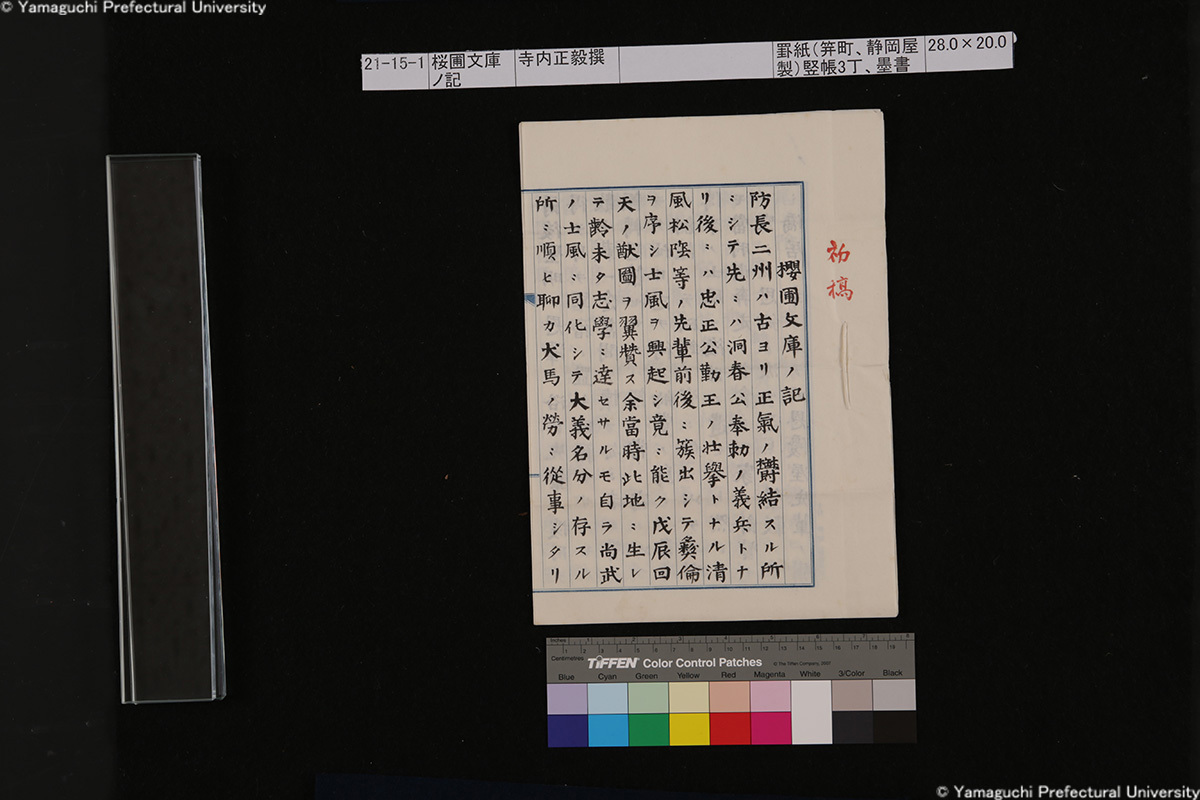 © Yamaguchi Prefectural University
21-15-1
桜圃文庫
ノ記
寺内正毅撰
罫紙(笄町、静岡屋
製)竪帳3丁、墨書
28.0×20.0
初稿
櫻圃文庫ノ記
防長二州ハ古ヨリ正氣ノ欝結スル所
ニシテ先ニハ洞春公奉勅ノ義兵トナ
リ後ニハ忠正公勤王ノ壮擧トナル清
風松陰等ノ先輩前後ニ簇出シテ彜倫
ヲ序シ士風ヲ興起シ竟ニ能ク戊辰回
天ノ猷圖ヲ翼賛ス余當時此地ニ生レ
テ齡未タ志學ニ達セサルモ自ラ尚武
ノ士風ニ同化シテ大義名分ノ存スル
所ニ順ヒ聊カ犬馬ノ勞ニ從事シタリ
Inches
Centimetres
TIFFEN Color Control Patches
© The Tiffen Company, 2007
Blue Cyan Green Yellow Red Magenta White 3/Color Black
© Yamaguchi Prefectural University